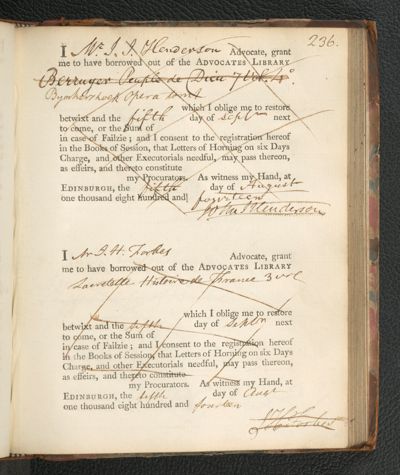 236.
I Mr. J. I. Henderson Advocate, grant
me to have borrowed out of the ADVOCATES LIBRARY
Berruyer Peuple de Dieu 7 Vol. 4°
Bynkershoek Opera
which I oblige me to restore
betwixt and the fifth day of Septr next
to come, or the Sum of
in case of Failzie ; and I consent to the registration hereof
in the Books of Session, that Letters of Horning on six Days
Charge, and other Executorials needful, may pass thereon,
as effeirs, and thereto constitute
my Procurators. As witness my Hand, at
EDINBURGH, the fifth day of August
one thousand eight hundred and fourteen
John Henderson
I Mr J. H. Forbes Advocate, grant
me to have borrowed out of the ADVOCATES LIBRARY
Lacretelle Histoire de France 3 vol
which I oblige me to restore
betwixt and the fifth day of Septr next
to come, or the Sum of
in case of Failzie ; and I consent to the registration hereof
in the Books of Session, that Letters of Horning on six Days
Charge, and other Executorials needful, may pass thereon,
as effeirs, and thereto constitute
my Procurators. As witness my Hand, at
EDINBURGH, the fifth day of Augt
one thousand eight hundred and fourteen